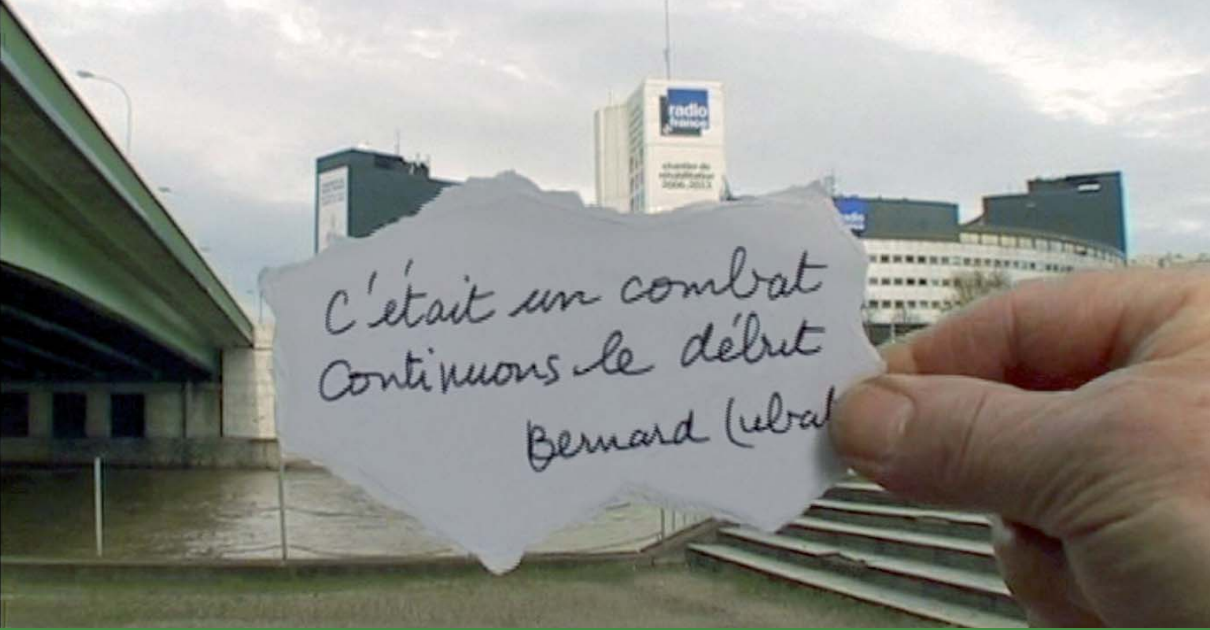 radio
france
chantier de
réhabilitation
2006-2013
radio
C'était un combat
Continuons le début
Bernard Lubat